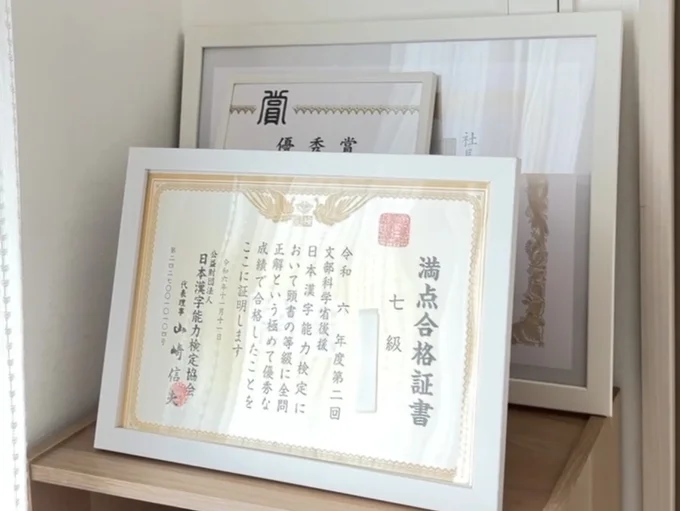 満点合格証書
七級
令和六年度第二回
文部科学省後援
日本漢字能力検定に
おいて頭書の等級に全問
正解という極めて優秀な
成績で合格したことを
ここに証明します
令和六年十一月十一日
公益財団法人
日本漢字能力検定協会
代表理事 山崎信夫
賞
優秀賞